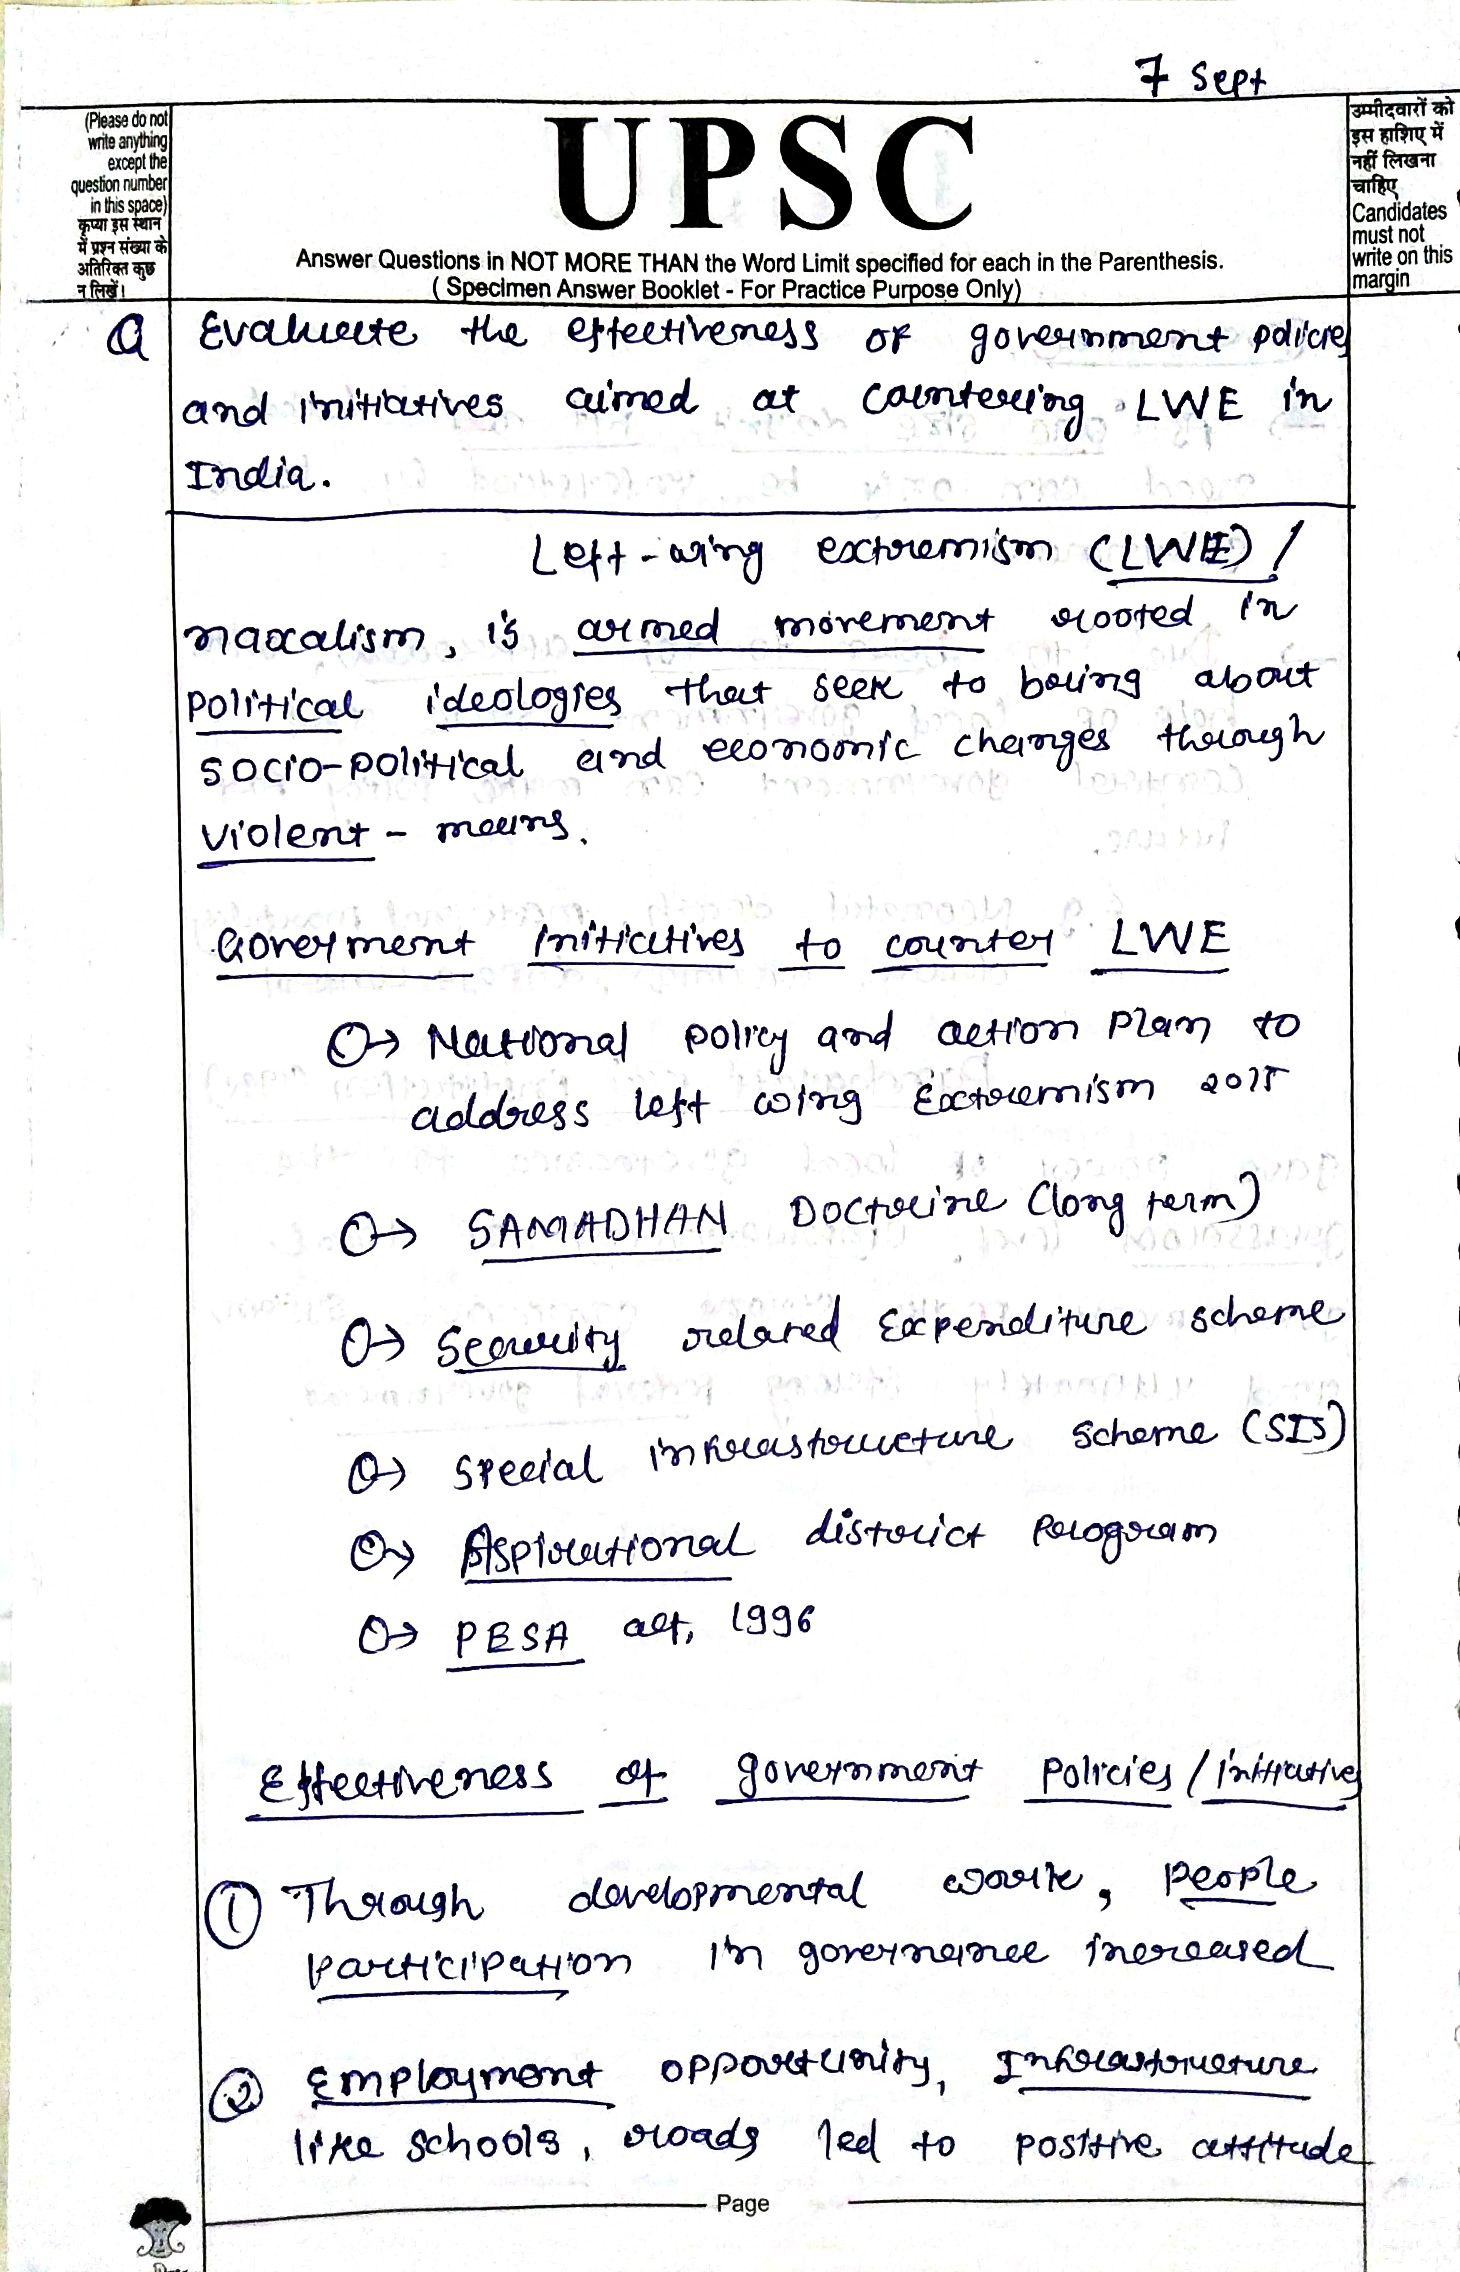 7 Sept
(Please do not
write anything
except the
question number
in this space)
कृप्या इस स्थान
में प्रश्न संख्या के
अतिरिक्त कुछ
न लिखें।
UPSC
Answer Questions in NOT MORE THAN the Word Limit specified for each in the Parenthesis.
( Specimen Answer Booklet - For Practice Purpose Only)
उम्मीदवारों को
इस हाशिए में
नहीं लिखना
चाहिए
Candidates
must not
write on this
margin
Q Evaluate the effectiveness of government policies
and initiatives aimed at countering LWE in
India.
Left-wing extremism (LWE) /
naxalism, is armed movement rooted in
political ideologies that seek to bring about
socio-political and economic changes through
violent - means.
Goverment initiatives to counter LWE
→ National policy and action plan to
address left wing Extremism 2015
→ SAMADHAN Doctrine (long term)
→ Security related Expenditure scheme
→ Special infrastructure scheme (SIS)
→ Aspirational district Program
→ PESA act, 1996
Effectiveness of government policies / initiatives
① Through developmental work, people
participation in governance increased
② Employment opportunity, Infrastructure
like schools, roads led to positive attitude
Page